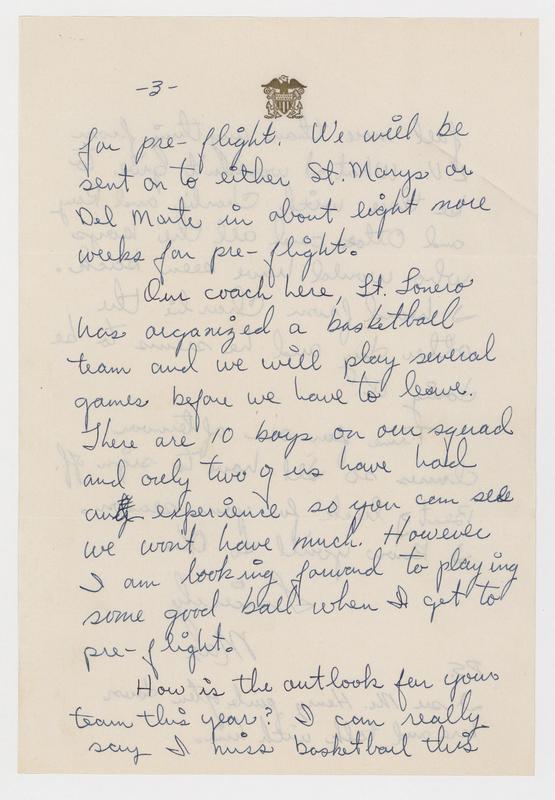 -3-
for pre-flight. We will be
sent on to either St. Marys or
Del Monte in about eight more
weeks for pre-flight.
Our coach here, Lt. Sonero
has organized a basketball
team and we will play several
games before we have to leave.
There are 10 boys on our squad
and only two of us have had
any experience so you can see
we won't have much. However
I am looking forward to playing
some good ball when I get to
pre-flight.
How is the outlook for your
team this year? I can really
say I miss basketball this